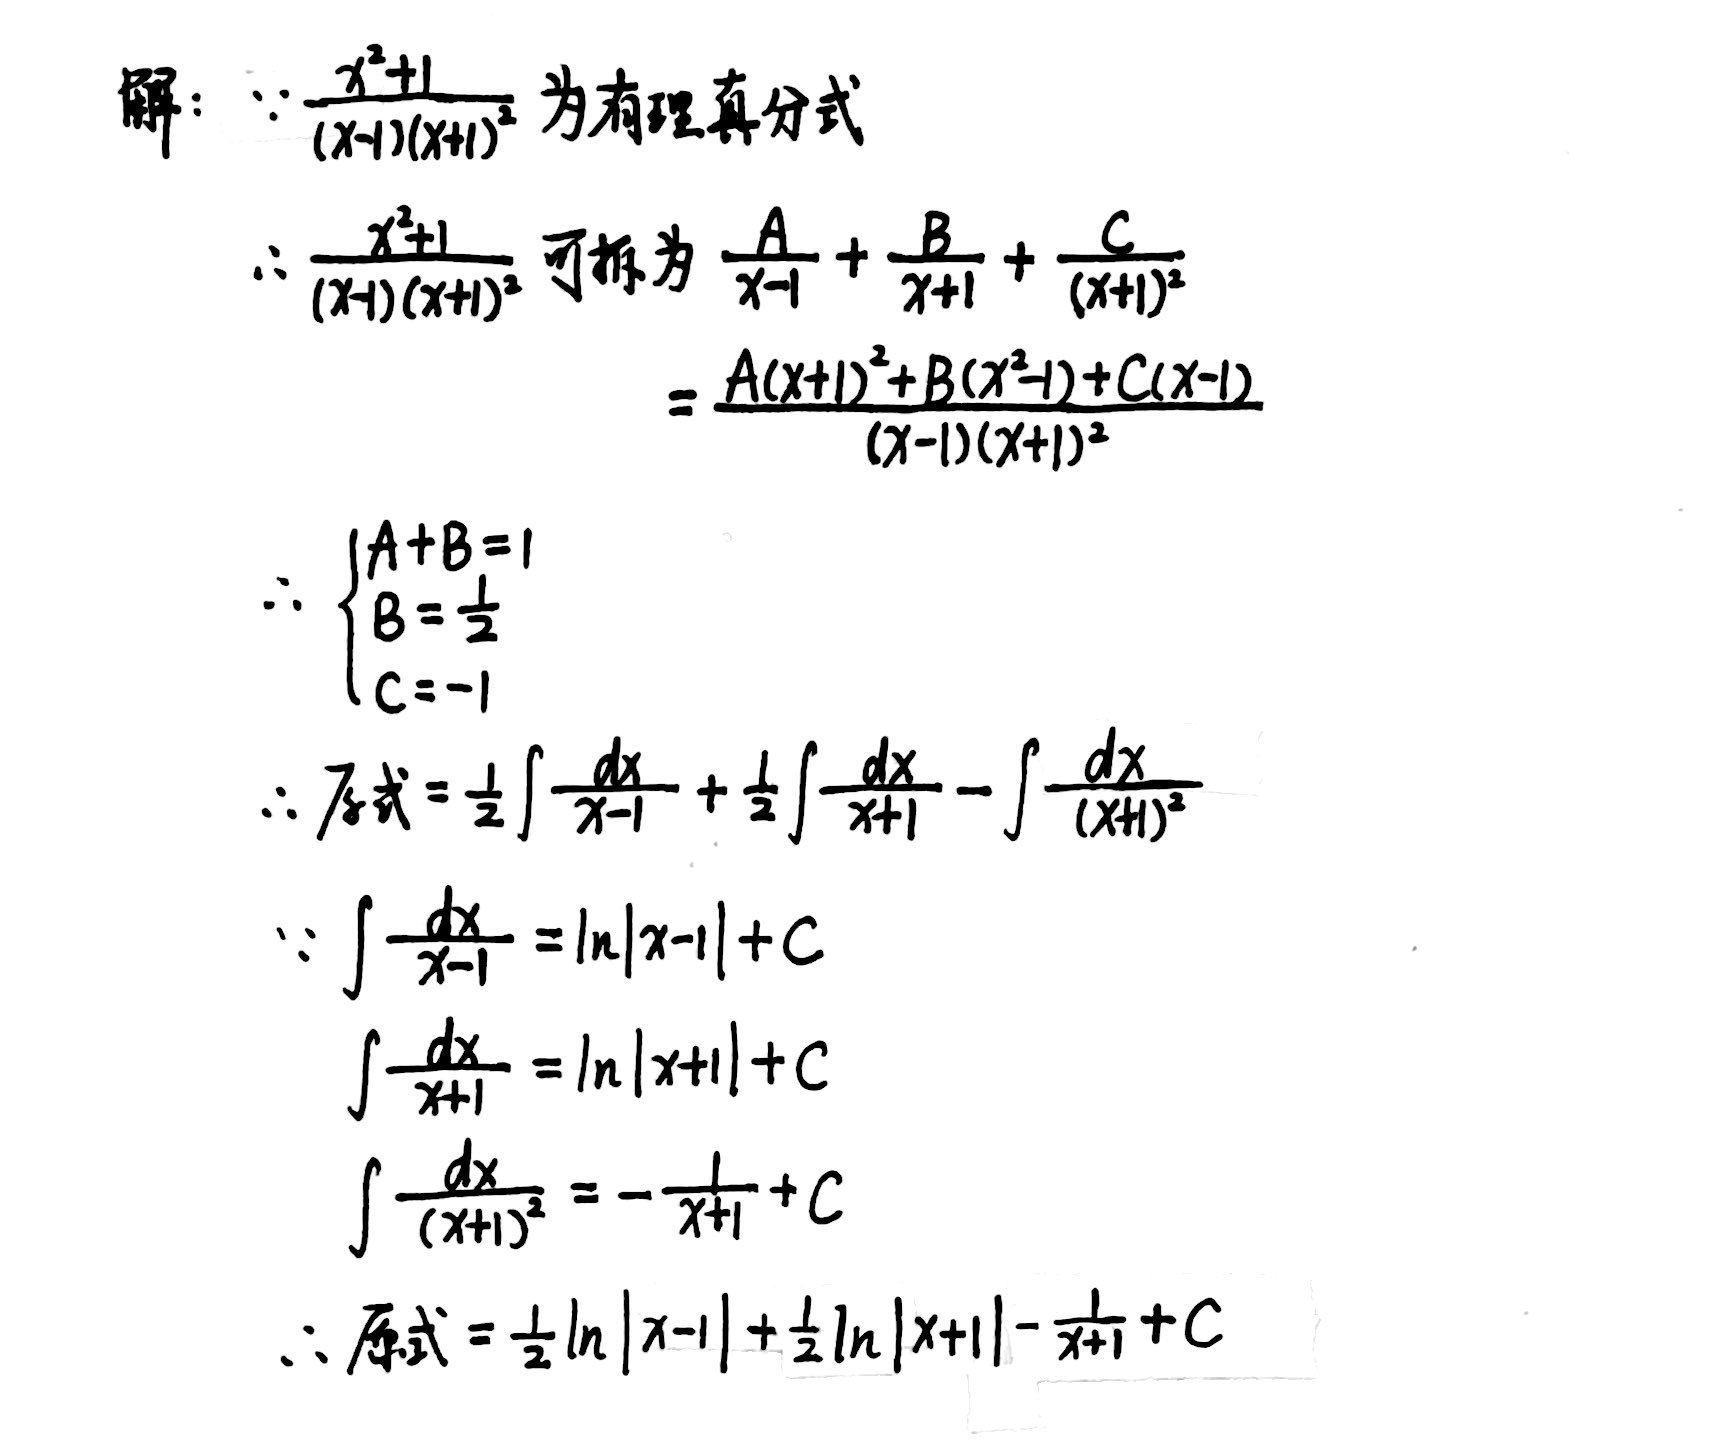 解: ∵ (x²+1)/((x-1)(x+1)²) 为有理真分式
∴ (x²+1)/((x-1)(x+1)²) 可拆为 A/(x-1) + B/(x+1) + C/(x+1)²
= (A(x+1)²+B(x²-1)+C(x-1))/((x-1)(x+1)²)
∴ { A+B=1
B=1/2
C=-1
∴ 原式 = 1/2 ∫ dx/(x-1) + 1/2 ∫ dx/(x+1) - ∫ dx/(x+1)²
∵ ∫ dx/(x-1) = ln|x-1|+C
∫ dx/(x+1) = ln|x+1|+C
∫ dx/(x+1)² = -1/(x+1) +C
∴ 原式 = 1/2 ln|x-1| + 1/2 ln|x+1| - 1/(x+1) + C